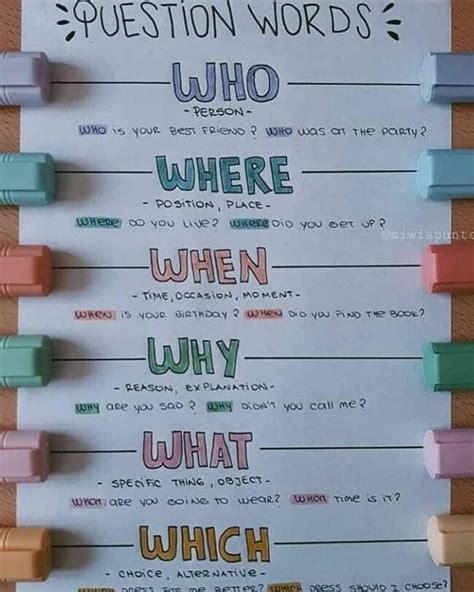 QUESTION WORDS
WHO
- PERSON -
WHO is your best friend? WHO was at the party?
WHERE
- POSITION, PLACE -
WHERE do you live? WHERE did you get up?
@miwiapunto
WHEN
- TIME, OCCASION, MOMENT -
WHEN is your birthday? WHEN did you find the book?
WHY
- REASON, EXPLANATION -
WHY are you sad? WHY didn't you call me?
WHAT
- SPECIFIC THING, OBJECT -
WHAT are you going to wear? WHAT time is it?
WHICH
- CHOICE, ALTERNATIVE -
WHICH dress fits me better? WHICH dress should I choose?